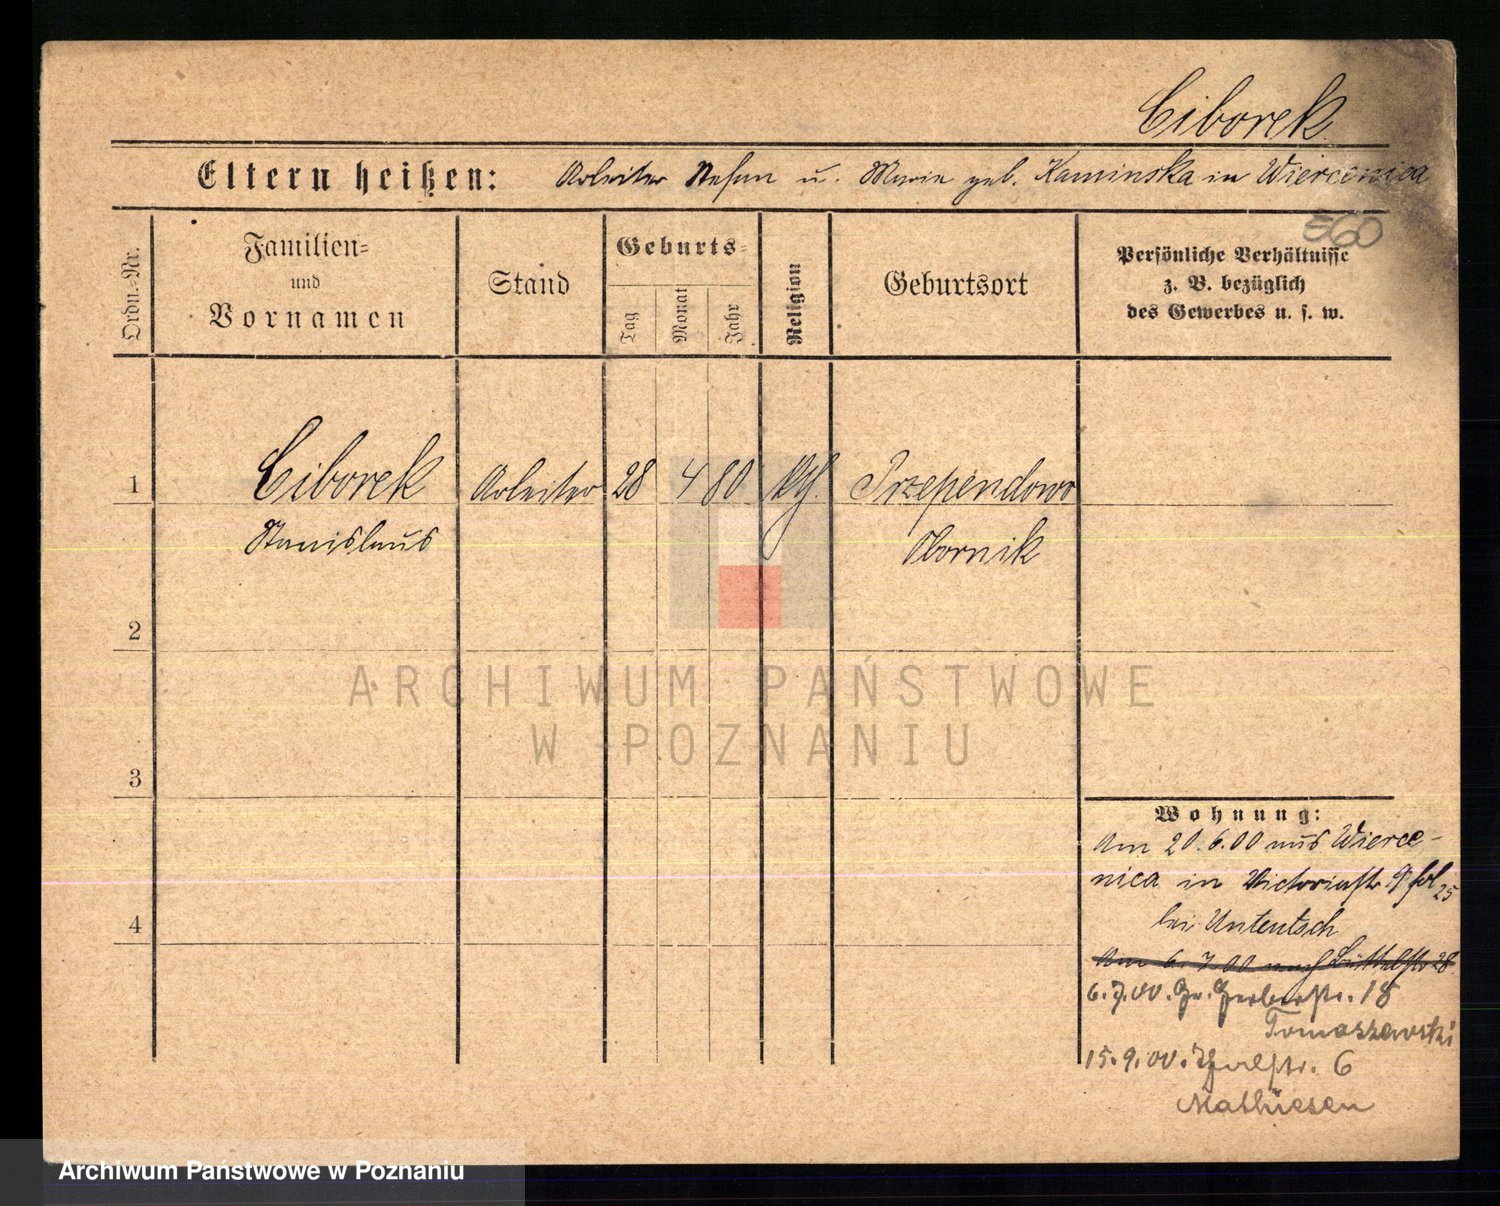 Ciborek
Eltern heißen: Arbeiter Stefan u. Marie geb. Kaminska in Wiercenica
560
Ordn.-Nr.
Familien-
und
Vornamen
Stand
Geburts-
Tag
Monat
Jahr
Religion
Geburtsort
Persönliche Verhältnisse
z. B. bezüglich
des Gewerbes u. s. w.
1 Ciborek Arbeiter 28 4 80 kth. Przependowo
Stanislaus Obornik
2
ARCHIWUM PAŃSTWOWE
W POZNANIU
3
Wohnung:
Am 20.6.00 aus Wierce-
nica in Victoriastr. 9 fol 25
4
bei Untentsch
Am 6.7.00 nach 28
6.7.00. Gr. Gerberstr. 18
Tomaszewski
15.9.00. Thalstr. 6
Mathiesen
Archiwum Państwowe w Poznaniu